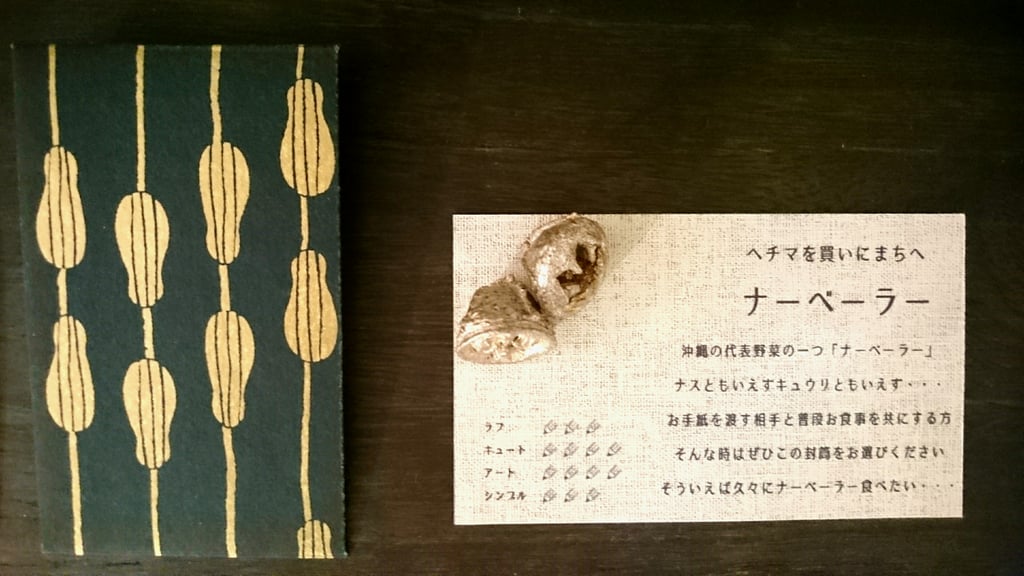 ヘチマを買いにまちへ
ナーベーラー
沖縄の代表野菜の一つ「ナーベーラー」
ナスともいえずキュウリともいえず・・・
お手紙を渡す相手と普段お食事を共にする方
そんな時はぜひこの封筒をお選びください
そういえば久々にナーベーラー食べたい・・・・
ラフ
キュート
アート
シンプル